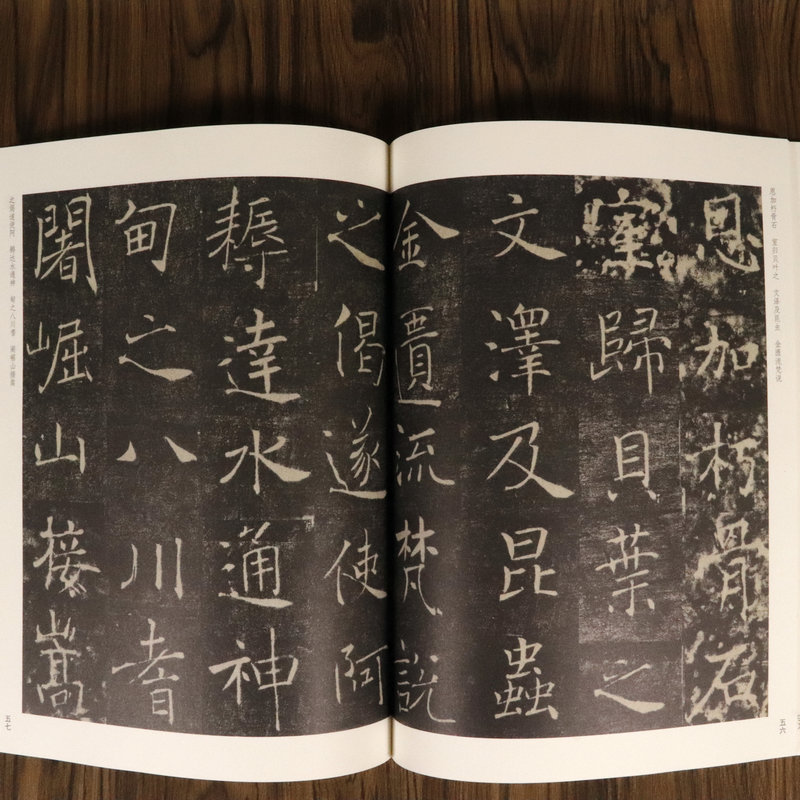 恩加朽骨石　室归贝叶之　文泽及昆虫　金匮流梵说
恩加朽骨石
室歸貝葉之
文澤及昆蟲
金匱流梵說
五六
之偈遂使阿
耨達水通神
甸之八川耆
闍崛山接嵩
之偈遂使阿　耨达水通神　甸之八川耆　阇崛山接嵩
五七